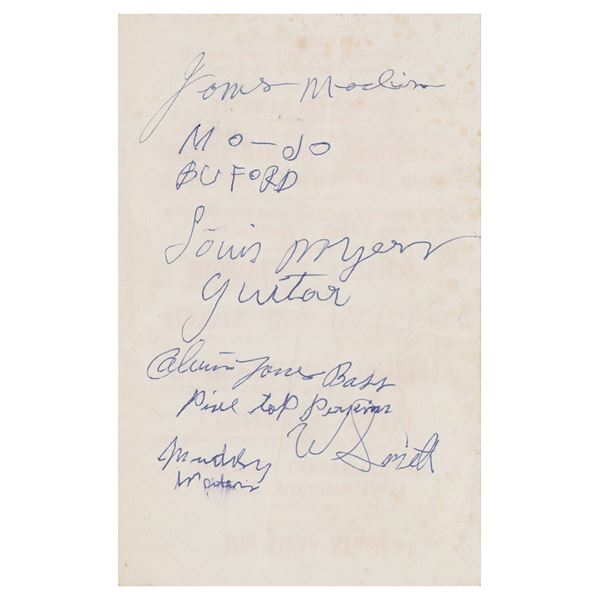 James Madison
Mo-Jo
BUFORD
Louis Myers
guitar
Calvin Jones Bass
Pine top Perkins
W Smith
Muddy
Waters